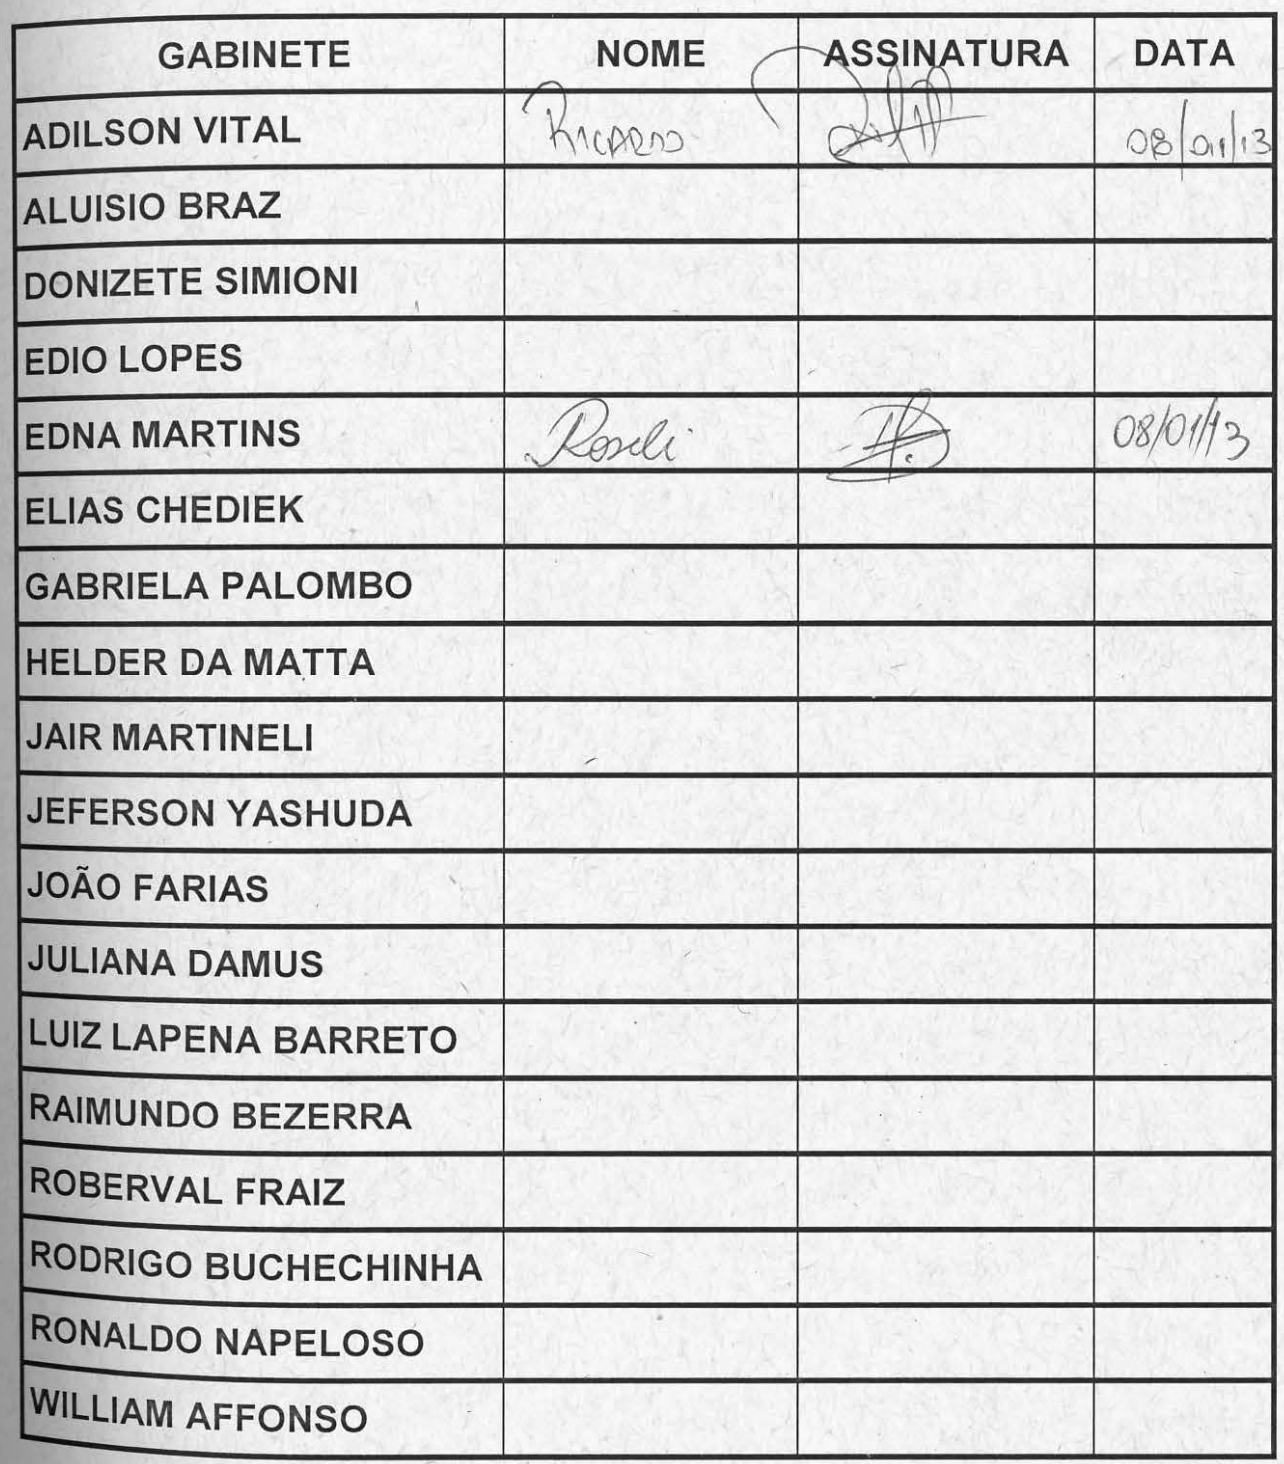 GABINETE NOME ASSINATURA DATA
ADILSON VITAL RICARDO 08/01/13
ALUISIO BRAZ
DONIZETE SIMIONI
EDIO LOPES
EDNA MARTINS Roseli 08/01/13
ELIAS CHEDIEK
GABRIELA PALOMBO
HELDER DA MATTA
JAIR MARTINELI
JEFERSON YASHUDA
JOÃO FARIAS
JULIANA DAMUS
LUIZ LAPENA BARRETO
RAIMUNDO BEZERRA
ROBERVAL FRAIZ
RODRIGO BUCHECHINHA
RONALDO NAPELOSO
WILLIAM AFFONSO